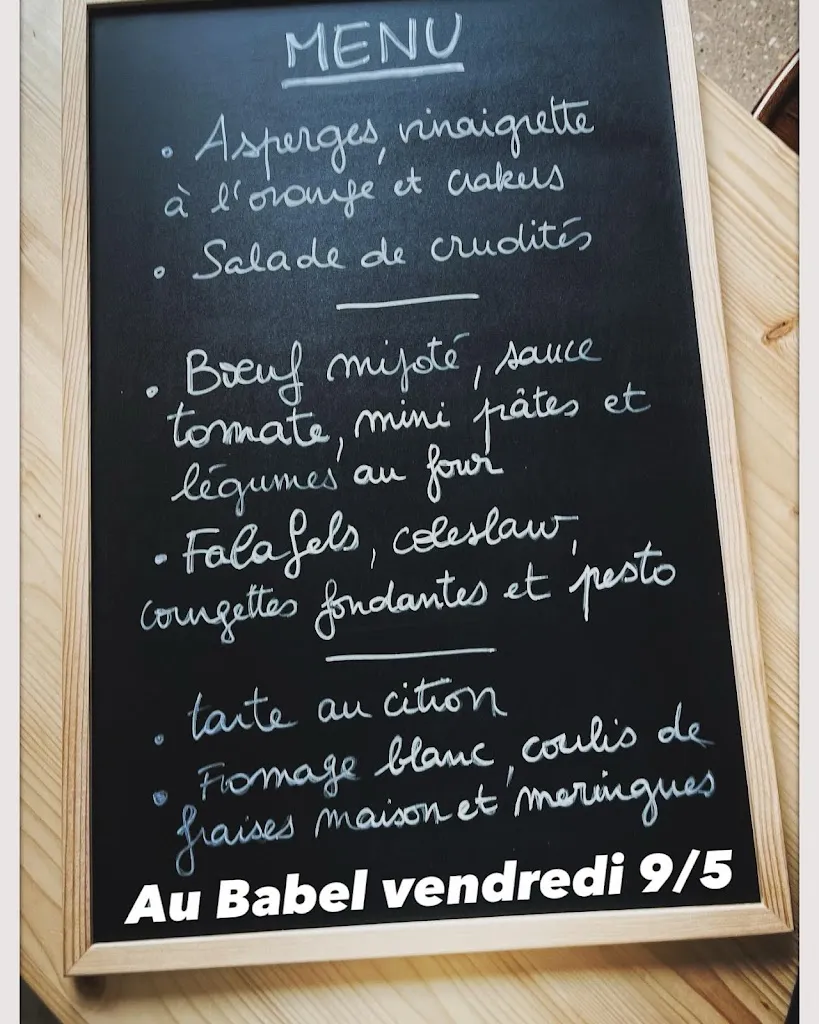 MENU
• Asperges, vinaigrette
à l'orange et crakers
• Salade de crudités
• Bœuf mijoté, sauce
tomate, mini pâtes et
légumes au four
• Falafels, coleslaw,
courgettes fondantes et pesto
• tarte au citron
• Fromage blanc, coulis de
fraises maison et meringues
Au Babel vendredi 9/5